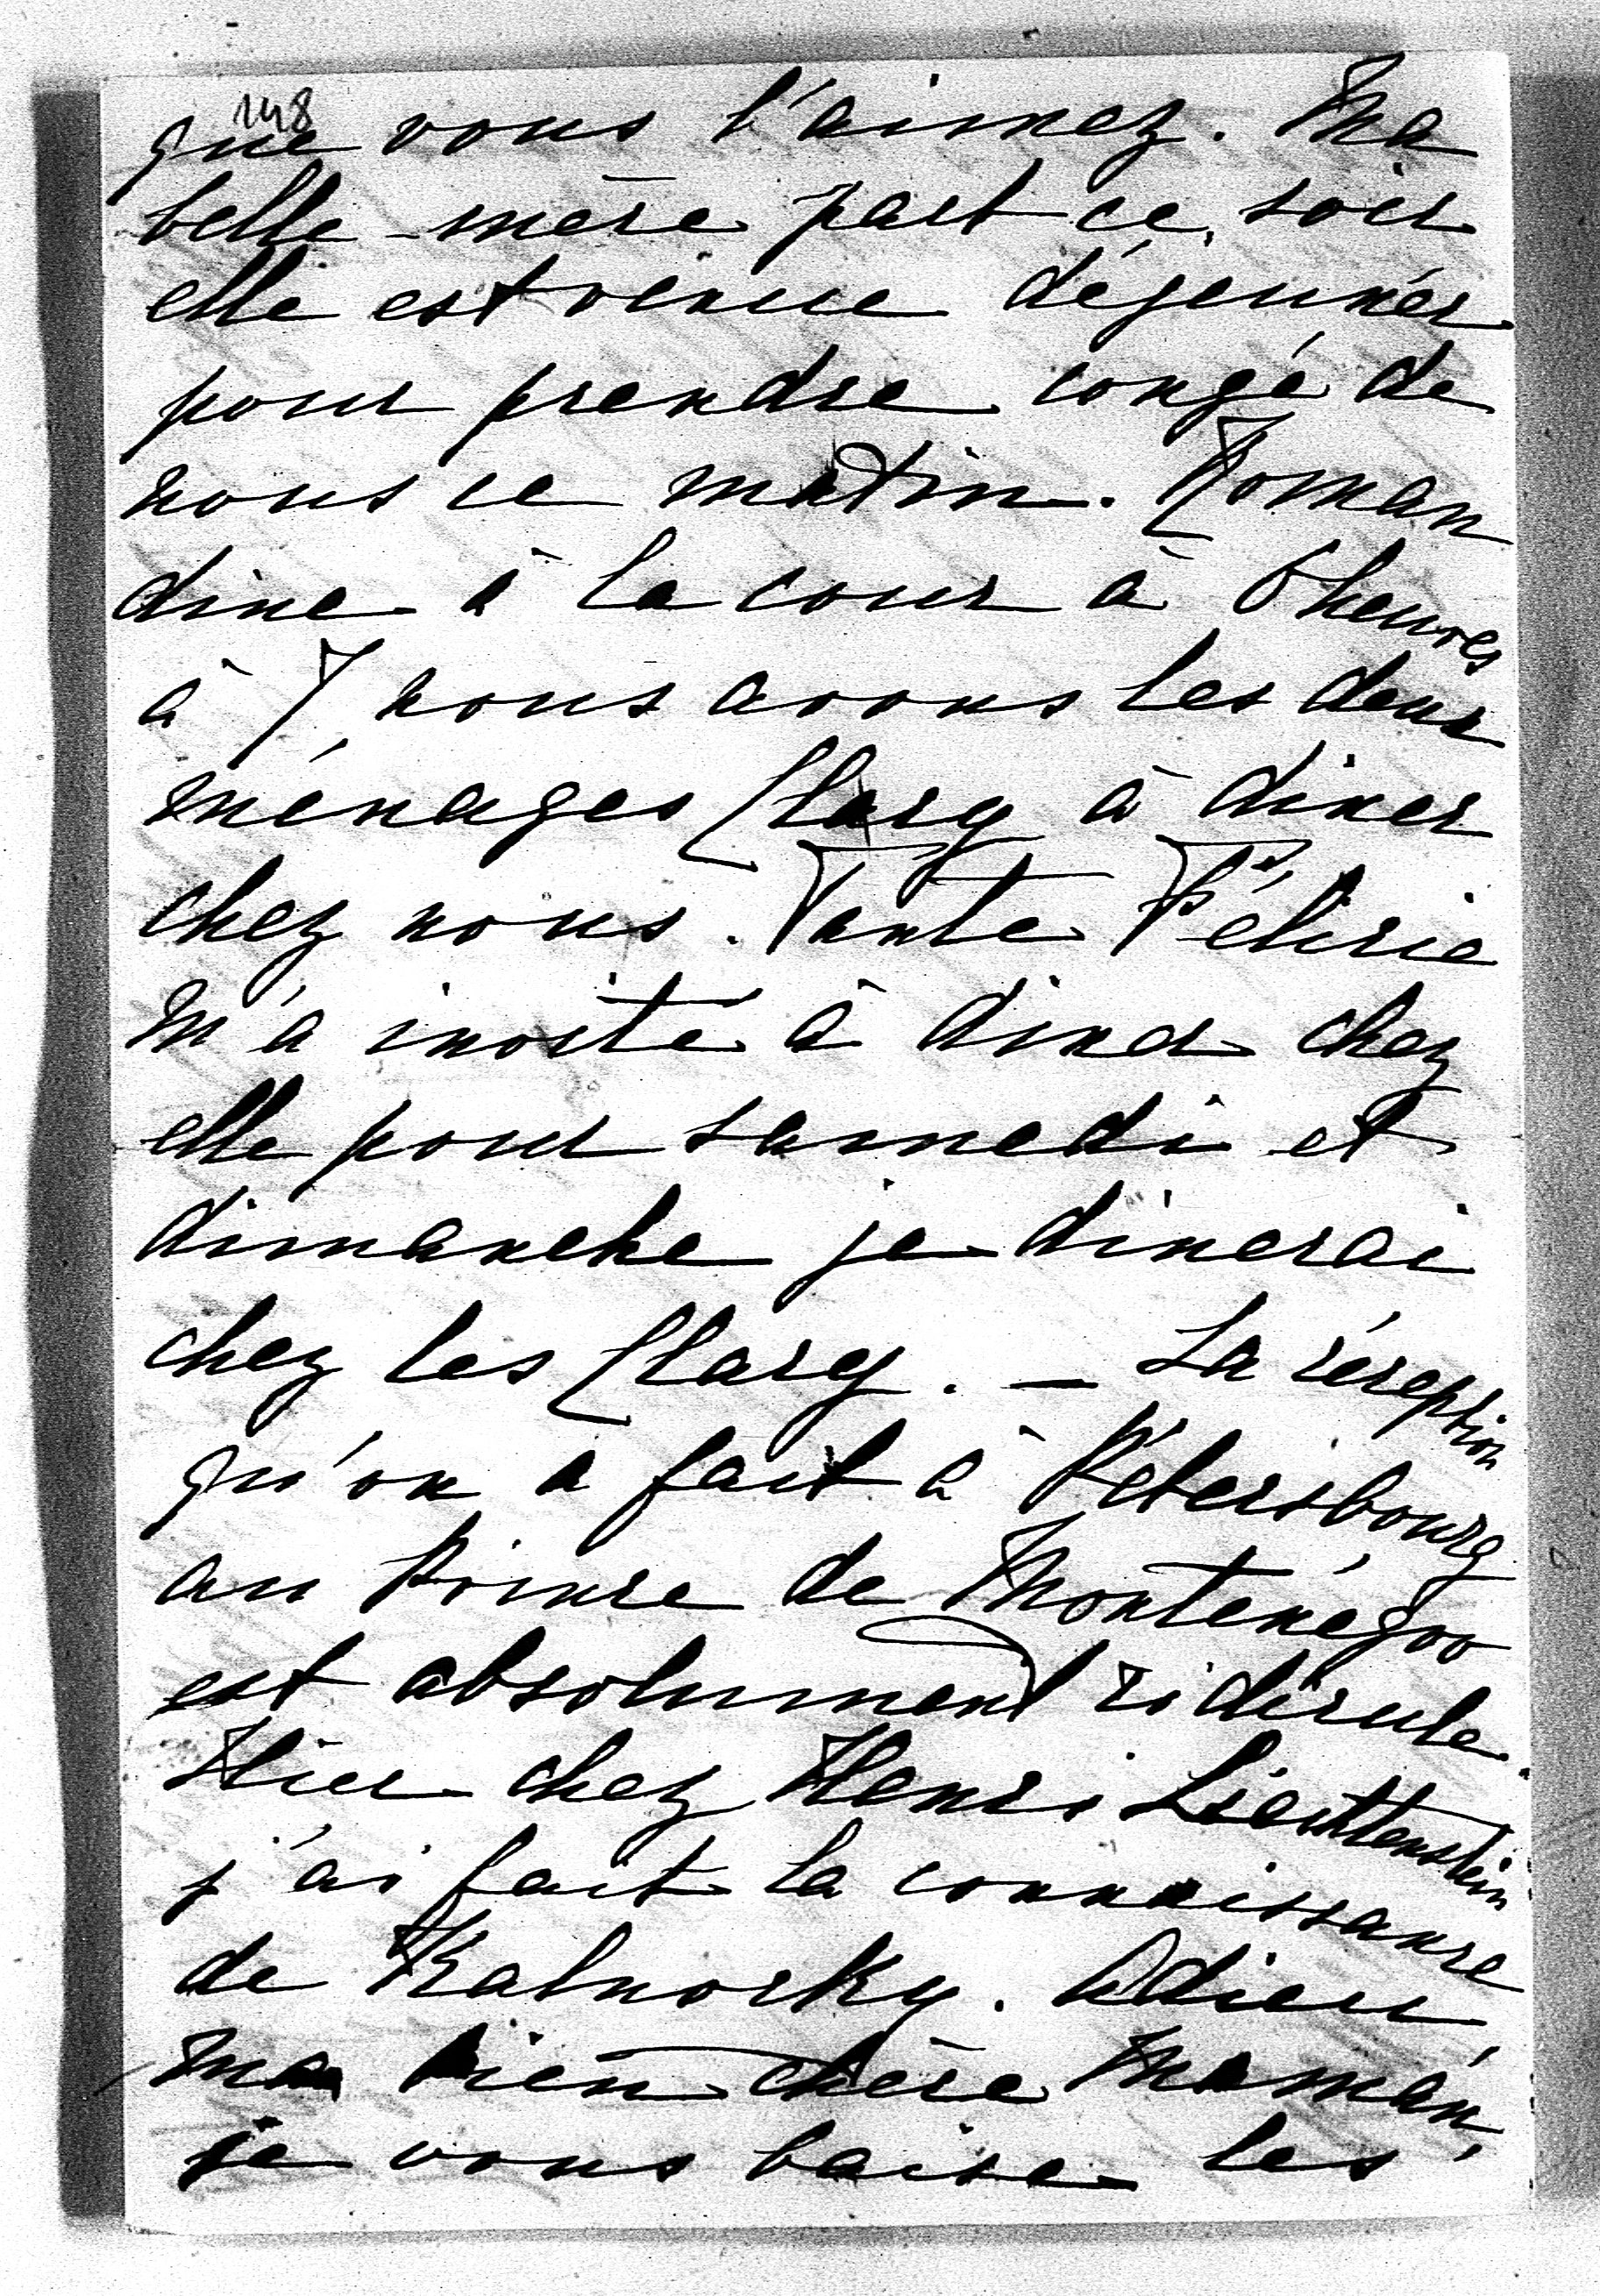 148
que vous l'aimez. Ma
belle-mère part ce soir
elle est venue déjeuner
pour prendre congé de
nous ce matin. Roman
dine à la cour à 6 heures
à 7 nous avons les deux
ménages Clary à diner
chez nous. Tante Félicie
m'a invité à diner chez
elle pour samedi et
dimanche je dinerai
chez les Clary. — La réception
qu'on a fait à Pétersbourg
au Prince de Monténégro
est absolument ridicule.
Hier chez Henri Liechtenstein
j'ai fait la connaissance
de Kalnocky. Adieu
ma bien chère Maman,
je vous baise les